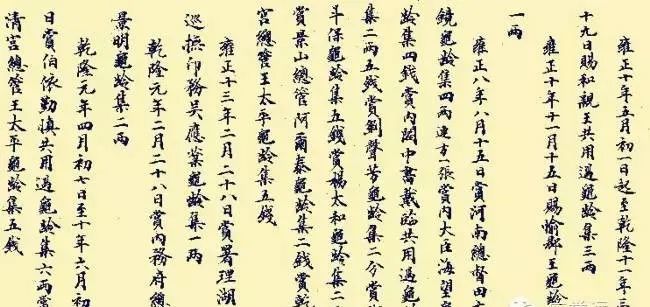 雍正十年五月初一日起至乾隆十一年三
十九日賜和親王共用過龜龄集三兩
雍正十年十一月十五日賜愉郡王龜龄
一兩
雍正八年八月十五日賞河南總督田文
鏡龜龄集四兩連方一張賞内大臣海望龜
龄集四錢賞内閣中書戴臨共用過龜
集二兩五錢賞劉聲芳龜龄集二分賞
斗保龜龄集五錢賞楊太和龜龄集二
賞景山總管阿爾泰龜龄集二錢賞乾
宮總管王太平龜龄集五錢
雍正十三年二月二十八日賞署理湖
巡撫印務吳應棻龜龄集一兩
乾隆元年二月二十八日賞内務府總
景明龜龄集二兩
乾隆元年四月初七日至十年六月初
日賞伯依勤慎共用過龜龄集六兩賞
清宮總管王太平龜龄集五錢